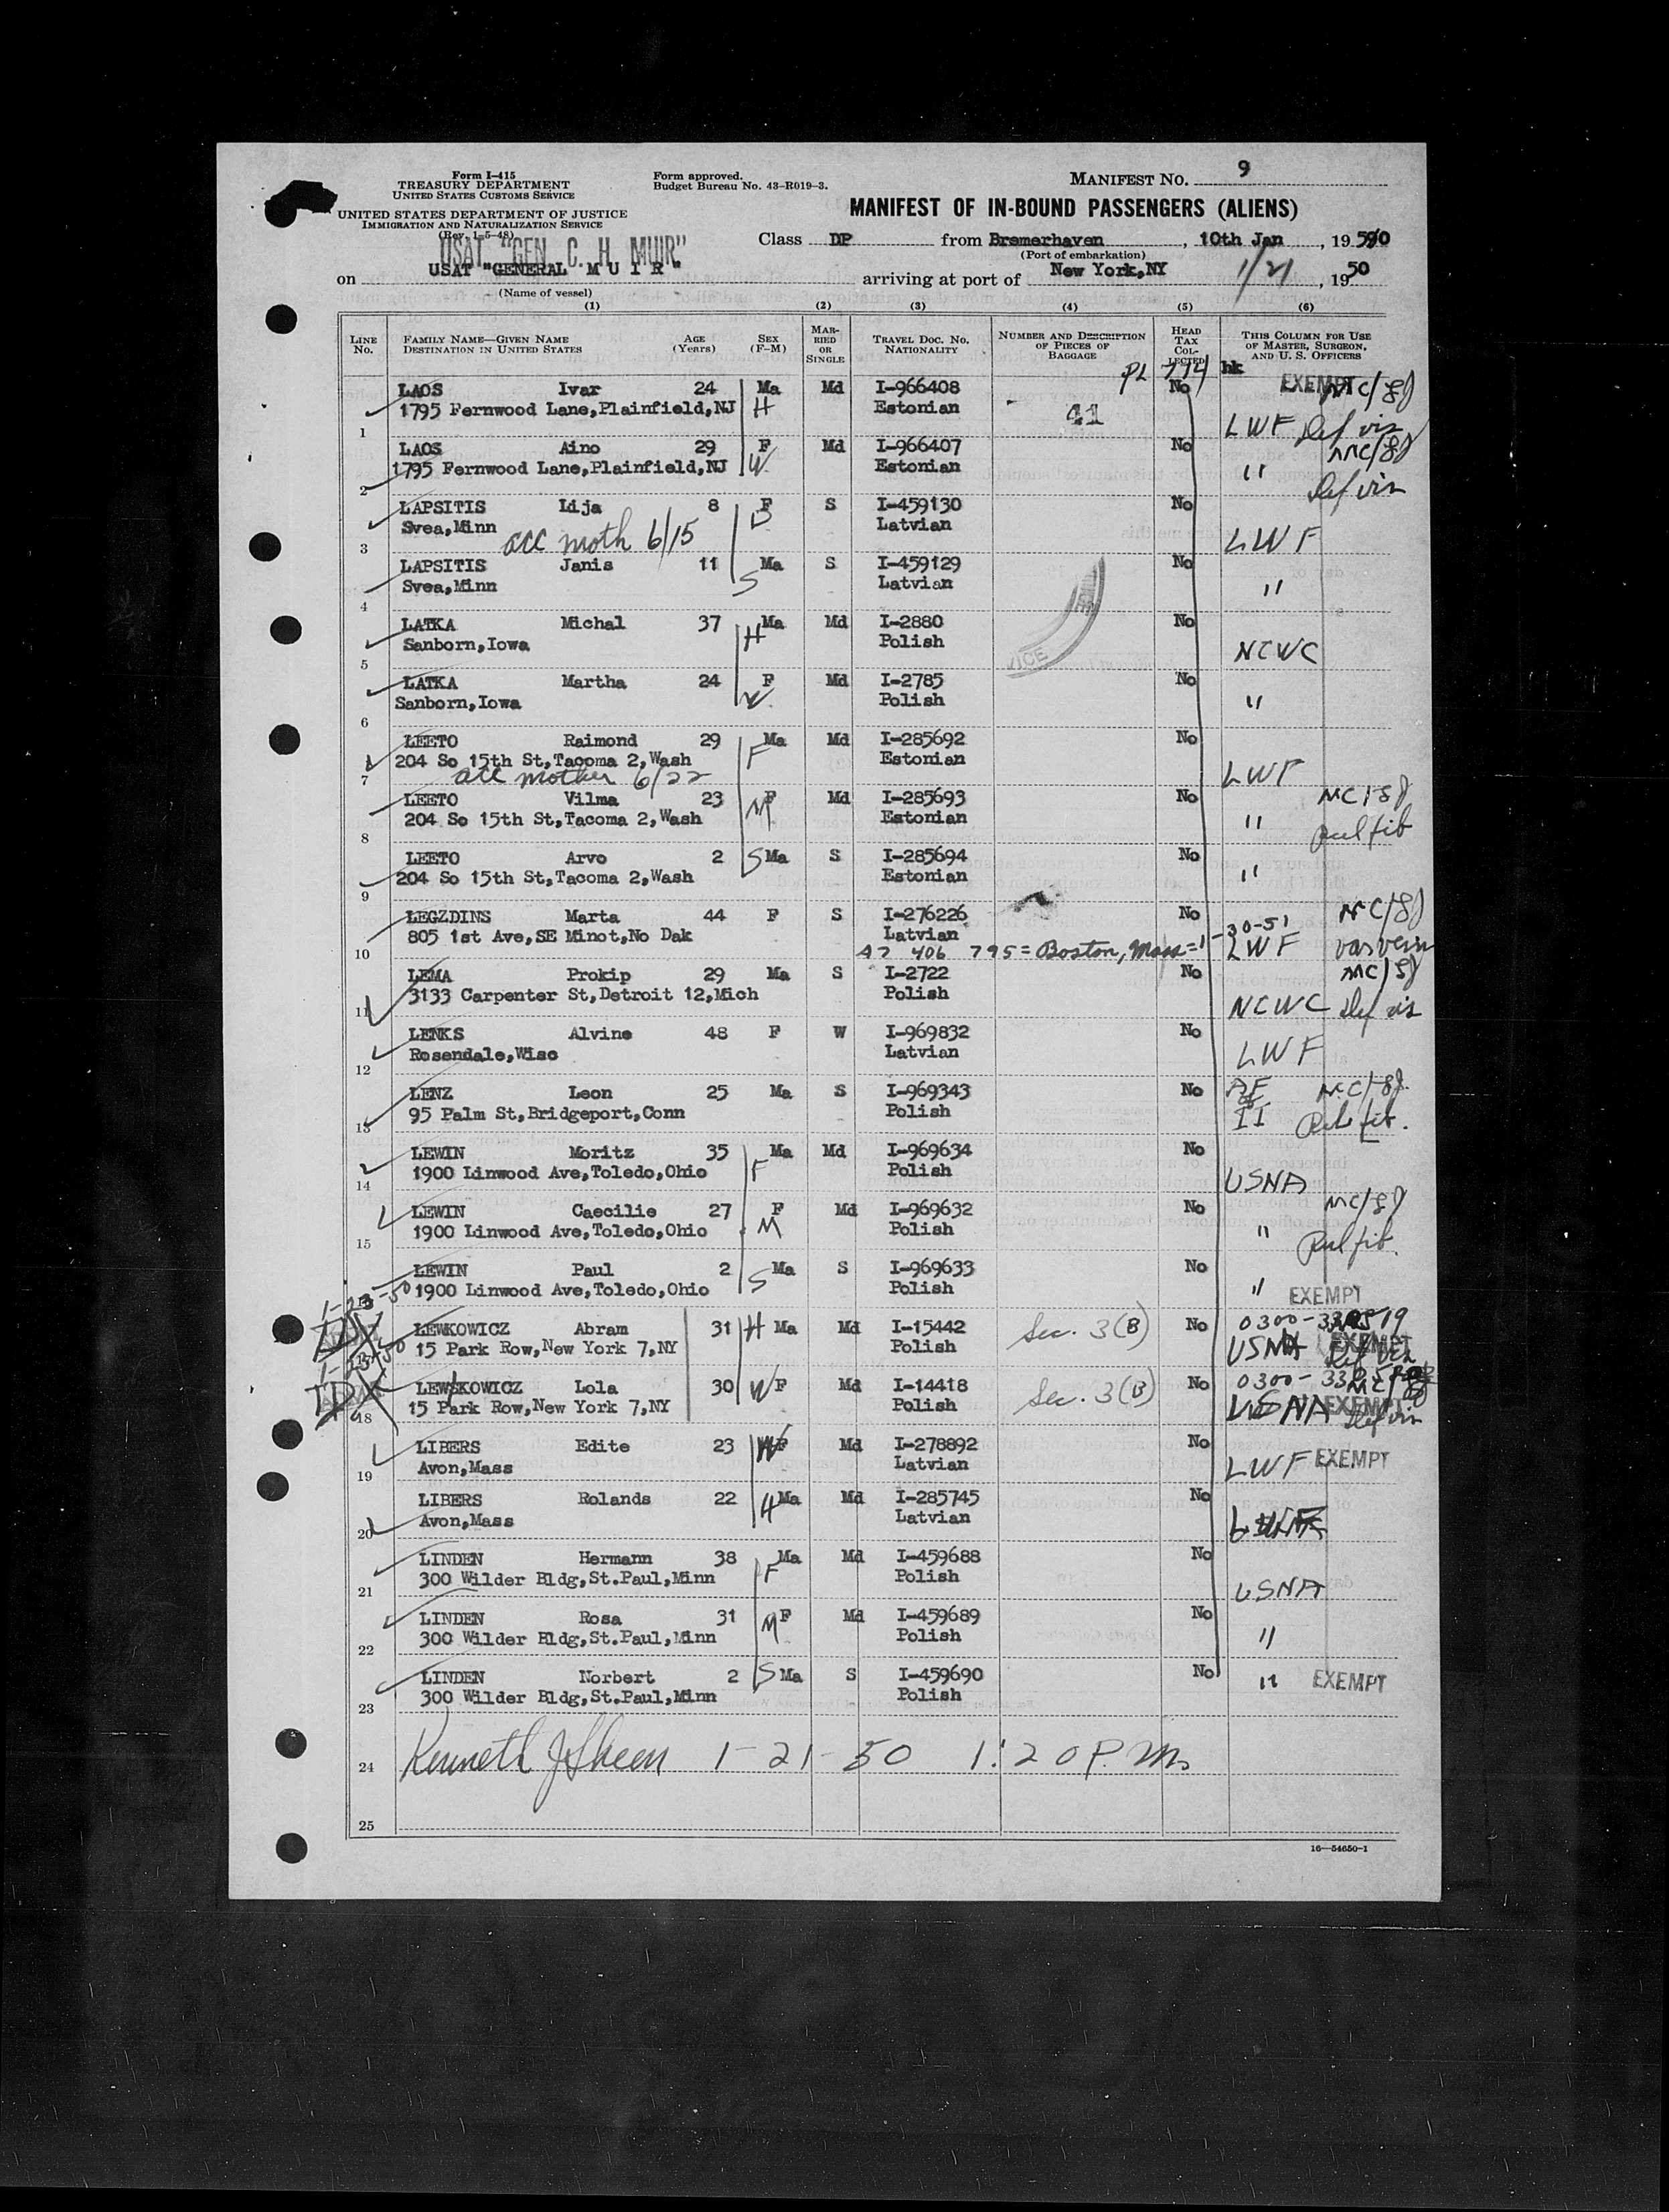 Form I-415
TREASURY DEPARTMENT
UNITED STATES CUSTOMS SERVICE
UNITED STATES DEPARTMENT OF JUSTICE
IMMIGRATION AND NATURALIZATION SERVICE
(Rev. 1-5-48)
Form approved.
Budget Bureau No. 43-R019-3.
MANIFEST NO. 9
MANIFEST OF IN-BOUND PASSENGERS (ALIENS)
Class DP from Bremerhaven, 10th Jan, 19 50
(Port of embarkation)
USAT "GEN C. H. MUIR"
on USAT "GENERAL M U I R" arriving at port of New York,NY 1/21, 19 50
(Name of vessel)
(1) (2) (3) (4) (5) (6)
LINE No. FAMILY NAME—GIVEN NAME DESTINATION IN UNITED STATES AGE (Years) SEX (F-M) MARRIED OR SINGLE TRAVEL DOC. NO. NATIONALITY NUMBER AND DESCRIPTION OF PIECES OF BAGGAGE HEAD TAX COLLECTED THIS COLUMN FOR USE OF MASTER, SURGEON, AND U. S. OFFICERS
PL 774 hk
LAOS Ivar 24 Ma Md I-966408 No EXEMPT MC/
1 1795 Fernwood Lane,Plainfield,NJ H Estonian 41 LWF Def vis
LAOS Aino 29 F Md I-966407 No MC/
2 1795 Fernwood Lane,Plainfield,NJ W Estonian " Def vis
LAPSITIS Lija 8 F S I-459130 No
3 Svea,Minn acc moth 6/15 D Latvian LWF
LAPSITIS Janis 11 Ma S I-459129 No
4 Svea,Minn S Latvian "
LATKA Michal 37 H Ma Md I-2880 No
5 Sanborn,Iowa Polish NCWC
LATKA Martha 24 F Md I-2785 No
6 Sanborn,Iowa W Polish "
LEETO Raimond 29 Ma Md I-285692 No
7 204 So 15th St,Tacoma 2,Wash F Estonian LWF
acc mother 6/22
LEETO Vilma 23 F Md I-285693 No MC/
8 204 So 15th St,Tacoma 2,Wash M Estonian " Pul fib
LEETO Arvo 2 S Ma S I-285694 No
9 204 So 15th St,Tacoma 2,Wash Estonian "
LEGZDINS Marta 44 F S I-276226 No MC/
10 805 1st Ave,SE Minot,No Dak Latvian LWF var vein
A7 406 795 = Boston, Mass = 1-30-51
LEMA Prokip 29 Ma S I-2722 No MC/
11 3133 Carpenter St,Detroit 12,Mich Polish NCWC Def vis
LENKS Alvine 48 F W I-969832 No
12 Rosendale,Wisc Latvian LWF
LENZ Leon 25 Ma S I-969343 No MC/
13 95 Palm St,Bridgeport,Conn Polish II Pul fib.
LEWIN Moritz 35 Ma Md I-969634 No
14 1900 Linwood Ave,Toledo,Ohio F Polish USNA
LEWIN Caecilie 27 F Md I-969632 No MC/
15 1900 Linwood Ave,Toledo,Ohio M Polish " Pul fib.
LEWIN Paul 2 Ma S I-969633 No
1900 Linwood Ave,Toledo,Ohio S Polish " EXEMPT
1-23-50
LEWKOWICZ Abram 31 H Ma Md I-15442 Sec. 3(B) No 0300-
15 Park Row,New York 7,NY Polish USNA EXEMPT Def vis
LEWKOWICZ Lola 30 W F Md I-14418 Sec. 3(B) No 0300-
18 15 Park Row,New York 7,NY Polish USNA EXEMPT Def vis
LIBERS Edite 23 W F Md I-278892 No
19 Avon,Mass Latvian LWF EXEMPT
LIBERS Rolands 22 H Ma Md I-285745 No
20 Avon,Mass Latvian
LINDEN Hermann 38 Ma Md I-459688 No
21 300 Wilder Bldg,St.Paul,Minn F Polish USNA
LINDEN Rosa 31 M F Md I-459689 No
22 300 Wilder Bldg,St.Paul,Minn Polish "
LINDEN Norbert 2 S Ma S I-459690 No " EXEMPT
23 300 Wilder Bldg,St.Paul,Minn Polish
24 Kenneth J Sheen 1-21-50 1:20 P.M.
25
16—54650-1